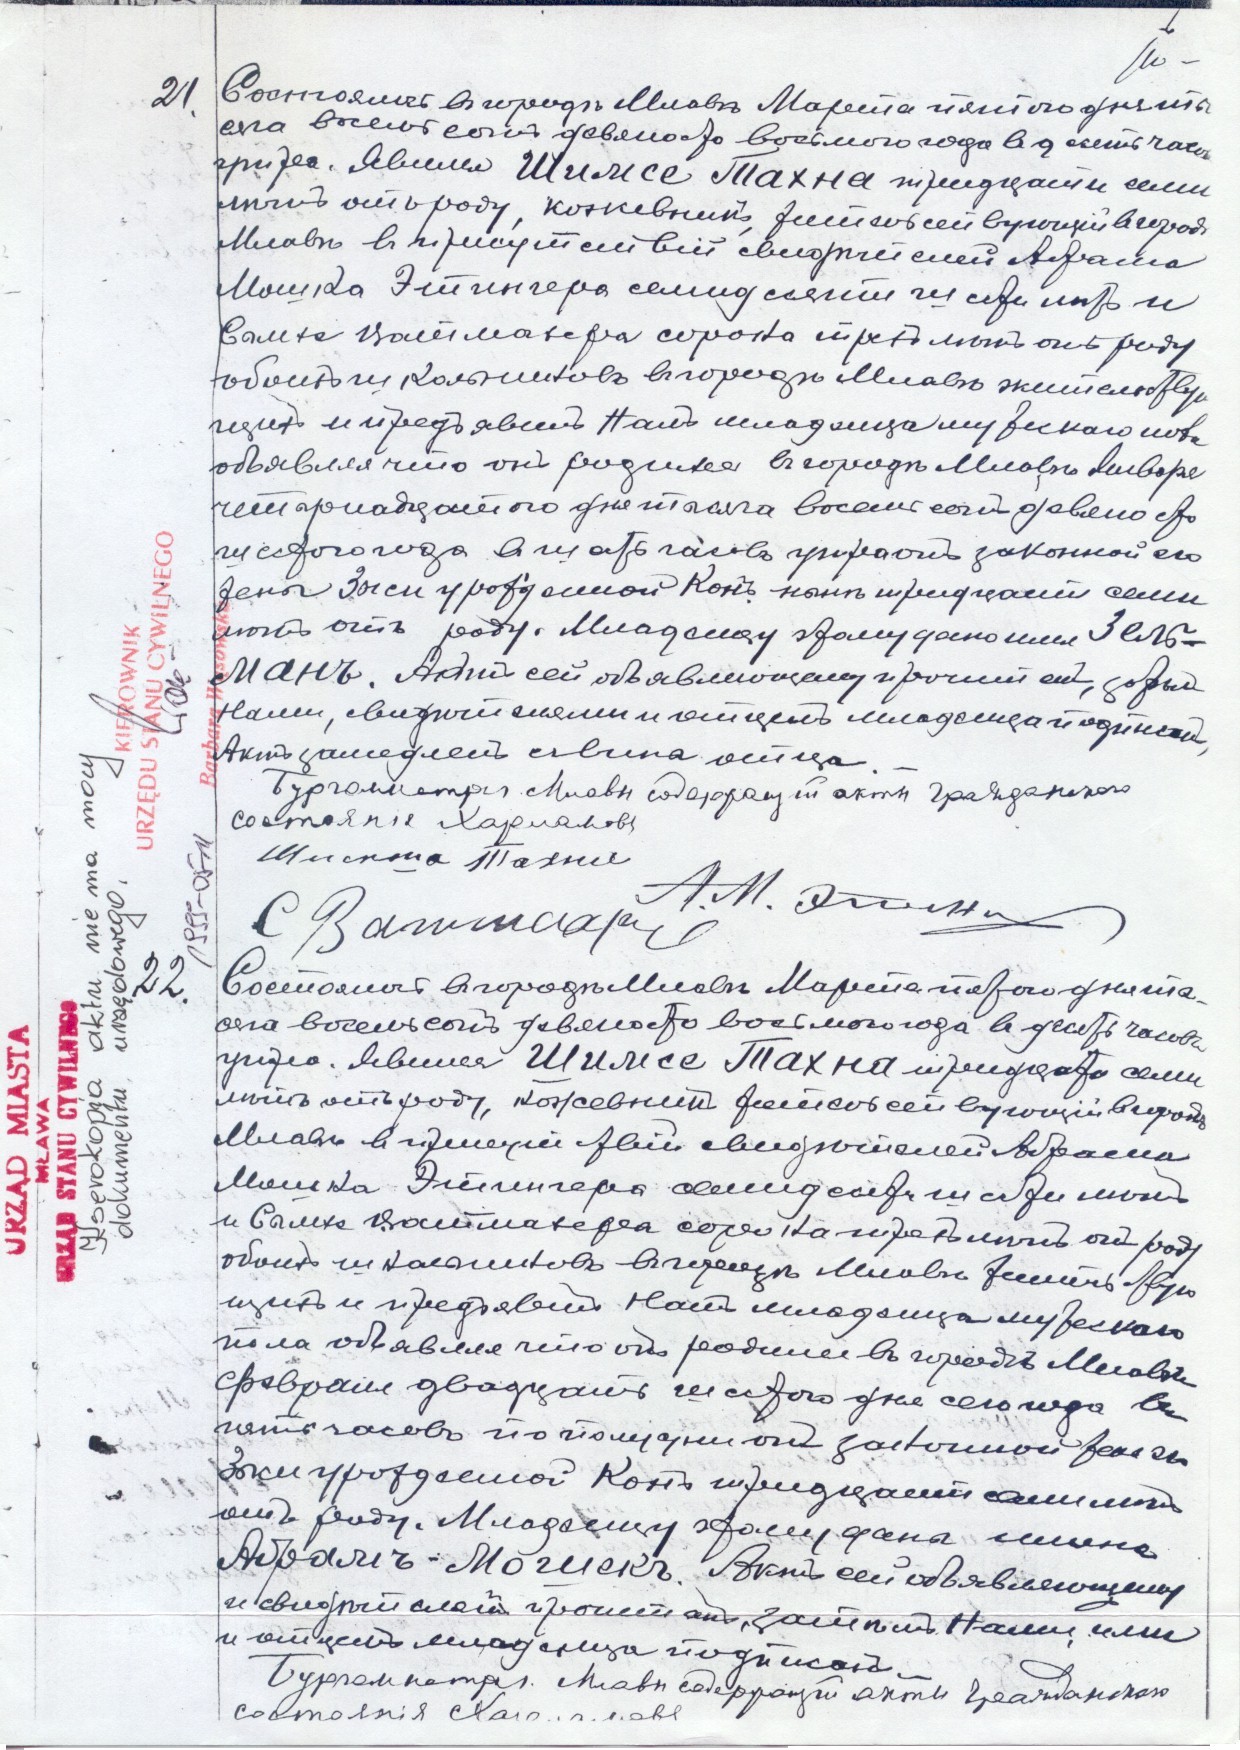 21. Состоялось въ городѣ Млавѣ Марта пятаго дня ты-
сяча восемьсотъ девяносто восьмого года въ десять часовъ
утра. Явился Шимсе Тахна тридцати семи
лѣтъ отъ роду, кожевникъ, жительствующій въ городѣ
Млавѣ въ присутствіи свидѣтелей Абрама
Мошка Этингера семидесяти шести лѣтъ и
Сымхе Вассермана сорока трехъ лѣтъ отъ роду
обоихъ школьниковъ въ городѣ Млавѣ жительству
щихъ и предъявилъ Намъ младенца мужескаго пола
объявляя что онъ родился въ городѣ Млавѣ Января
четырнадцатого дня тысяча восемьсотъ девяносто
шестого года въ шесть часовъ утра отъ законной его
жены Зыси урожденной Конъ нынѣ тридцати семи
лѣтъ отъ роду. Младенцу этому дано имя Зель-
манъ. Актъ сей объявляющему прочитанъ, затѣмъ
Нами, свидѣтелями и отцемъ младенца подписанъ,
Актъ замедленъ съ вина отца.
Бургомистръ г. Млавы содержащій акты гражданскаго
состоянія Харламовъ
Шимша Тахна
А. М. Этинг
С Ватмахеръ
22. Состоялось въ городѣ Млавѣ Марта пятого дня ты-
сяча восемьсотъ девяносто восьмого года въ десять часовъ
утра. Явился Шимсе Тахна тридцати семи
лѣтъ отъ роду, кожевникъ жительствующій въ городѣ
Млавѣ въ присутствіи свидѣтелей Абрама
Мошка Этингера семидесяти шести лѣтъ
и Сымхе Ватмахера сорока трехъ лѣтъ отъ роду
обоихъ школьниковъ въ городѣ Млавѣ жительствую
щихъ и предъявилъ Намъ младенца мужескаго
пола объявляя что онъ родился въ городѣ Млавѣ
Февраля двадцать шестого дня сего года въ
пять часовъ по полудни отъ законной жены
Зыси урожденной Конъ тридцати семи лѣтъ
отъ роду. Младенцу этому даны имена
Абрамъ-Мошекъ. Актъ сей объявляющему
и свидѣтелямъ прочитанъ, затѣмъ Нами, ими
и отцемъ младенца подписанъ.
Бургомистръ г. Млавы содержащій акты гражданскаго
состоянія Харламовъ
URZĄD MIASTA
MŁAWA
URZĄD STANU CYWILNEGO
Kserokopia aktu nie ma mocy
dokumentu urzędowego.
KIEROWNIK
URZĘDU STANU CYWILNEGO
Barbara